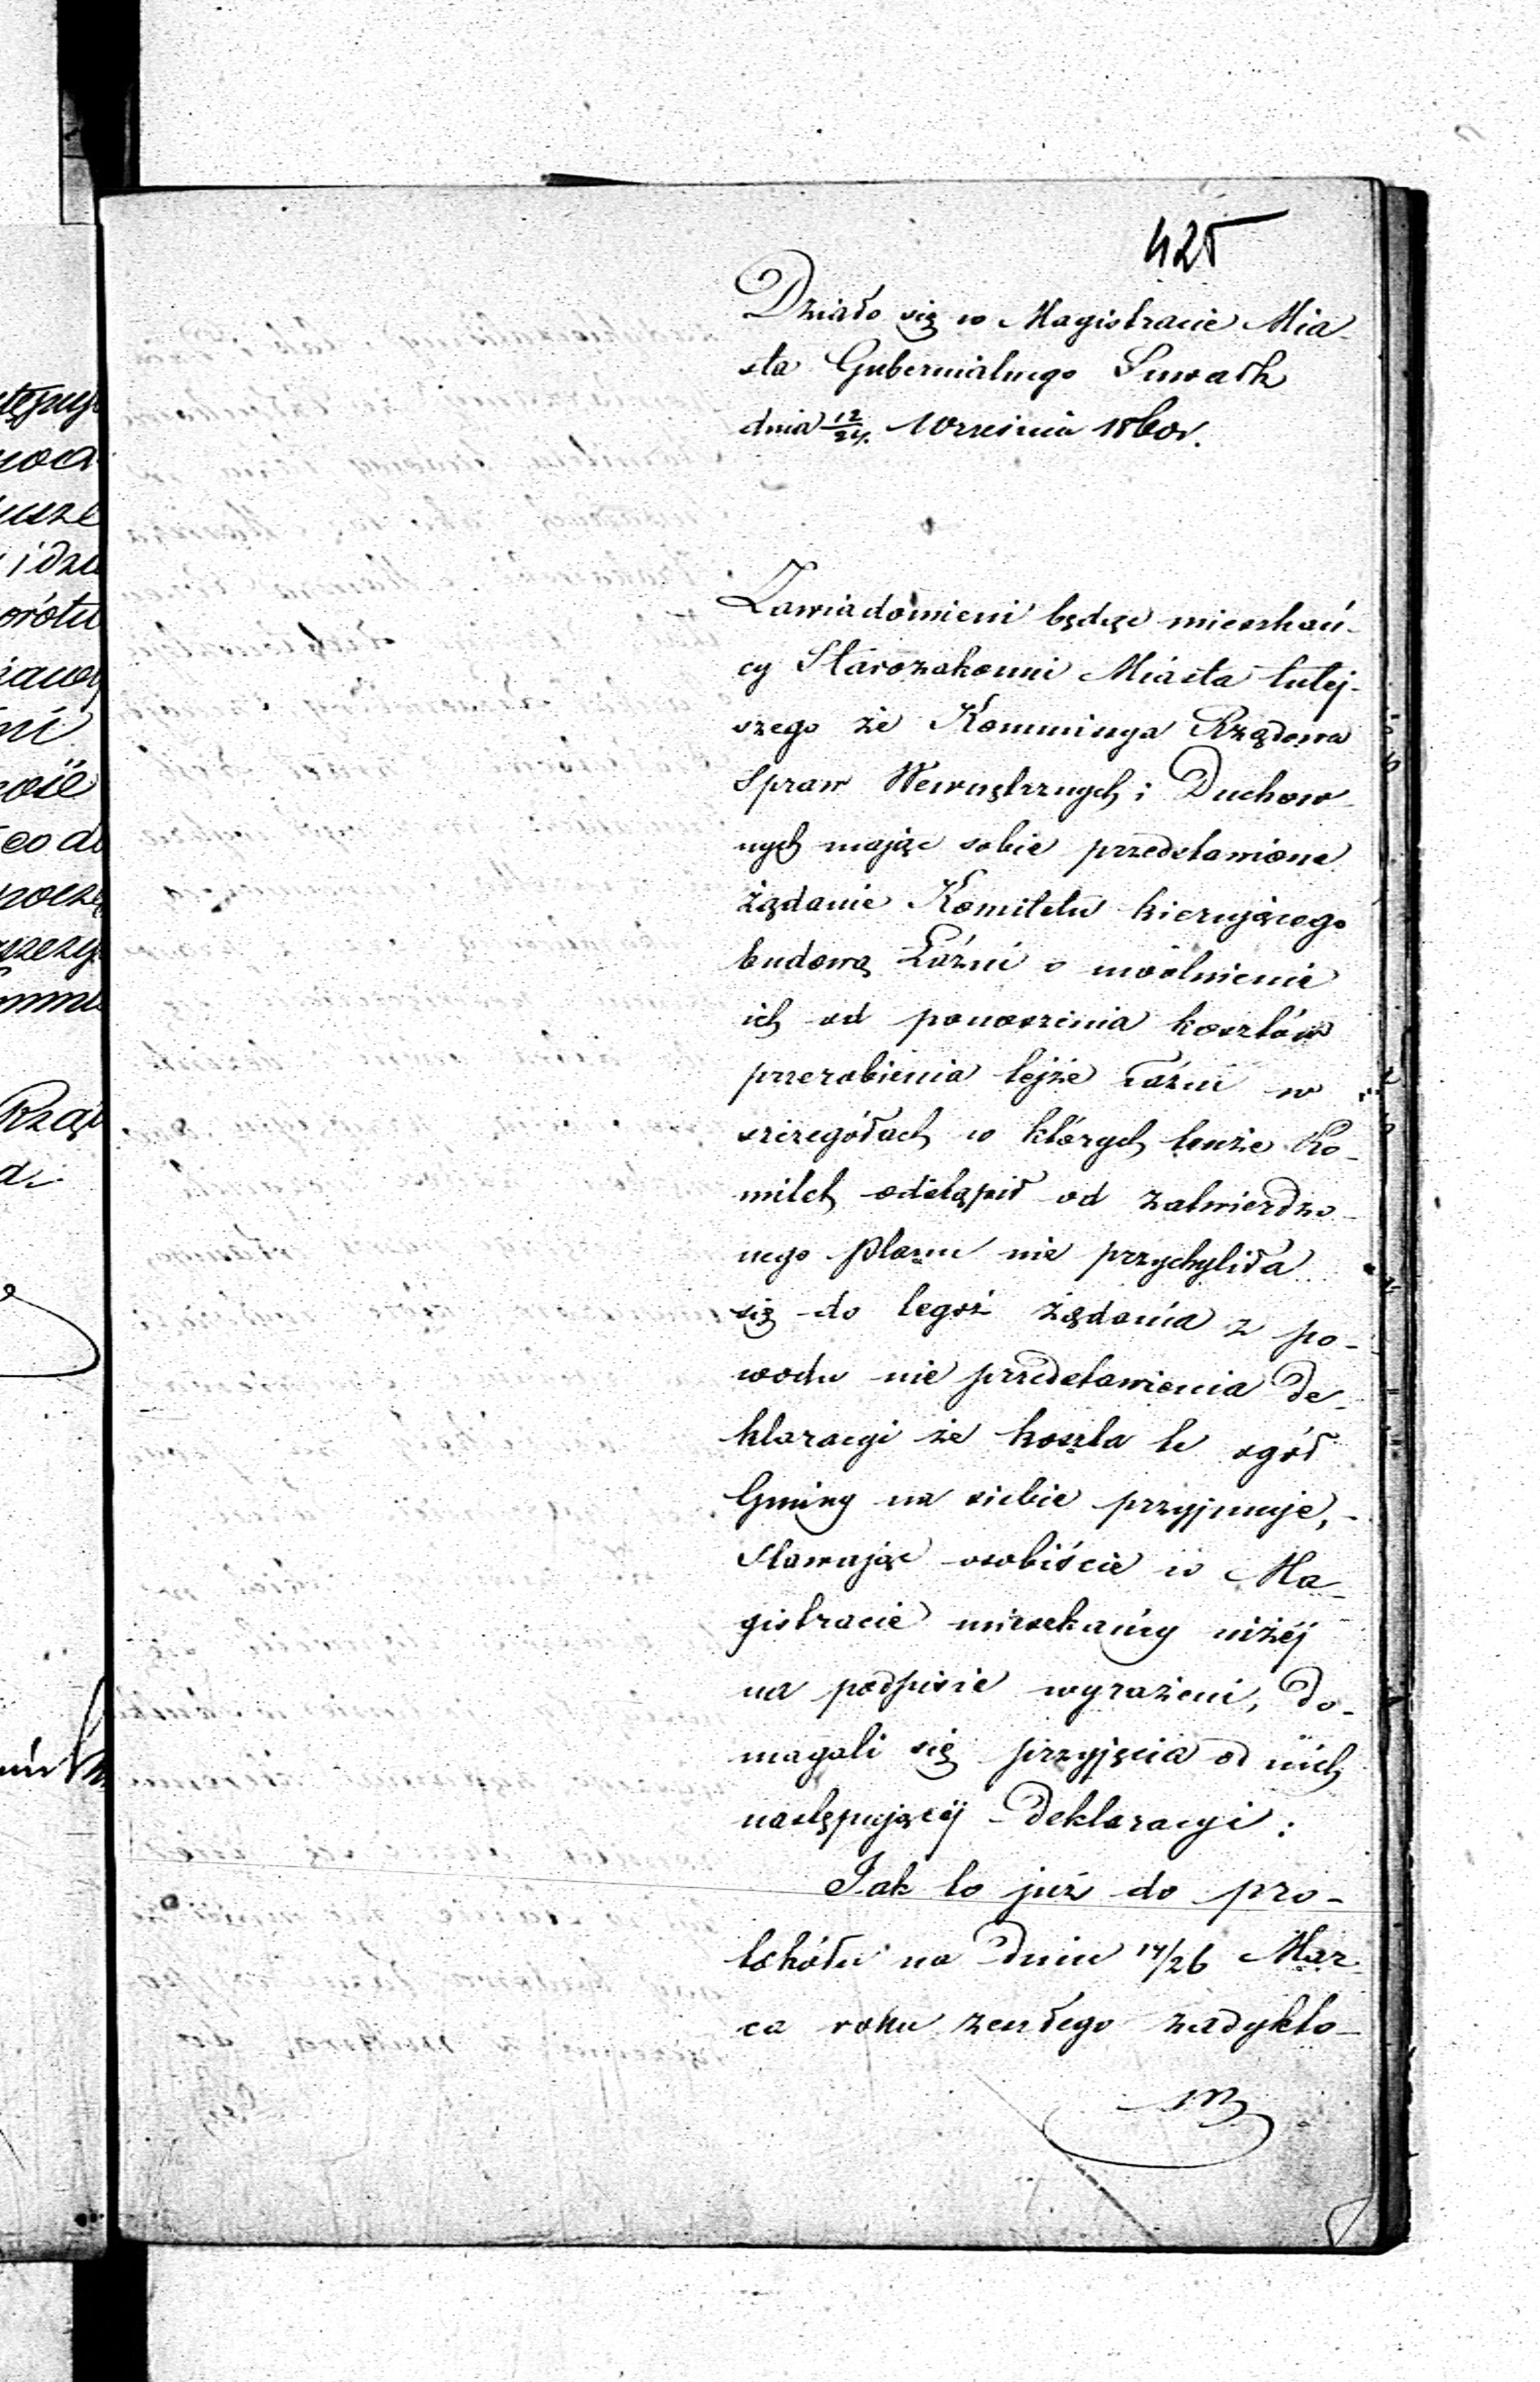 425
Działo się w Magistracie Mia-
sta Gubernialnego Suwałk
dnia 12/24 Września 1860 r.
Zawiadomieni będąc mieszkań-
cy Starozakonni Miasta tutej-
szego że Kommissya Rządowa
Spraw Wewnętrznych i Duchow-
nych mając sobie przedstawione
żądanie Komitetu kierującego
budową Łaźni o uwolnienie
ich od ponoszenia kosztów
przerobienia tejże Łaźni w
szczegółach w których tenże Ko-
mitet odstąpił od zatwierdzo-
nego planu nie przychyliła
się do tegoż żądania z po-
wodu nie przedstawienia De-
klaracyi że koszta te ogół
Gminy na siebie przyjmuje, -
Stawając osobiście w Ma-
gistracie mieszkańcy niżéj
na podpisie wyrażeni, do-
magali się przyjęcia od nich
następującéj Deklaracyi:
Jak to już do pro-
tokółu na dniu 14/26 Mar-
ca roku zeszłego zadykto-